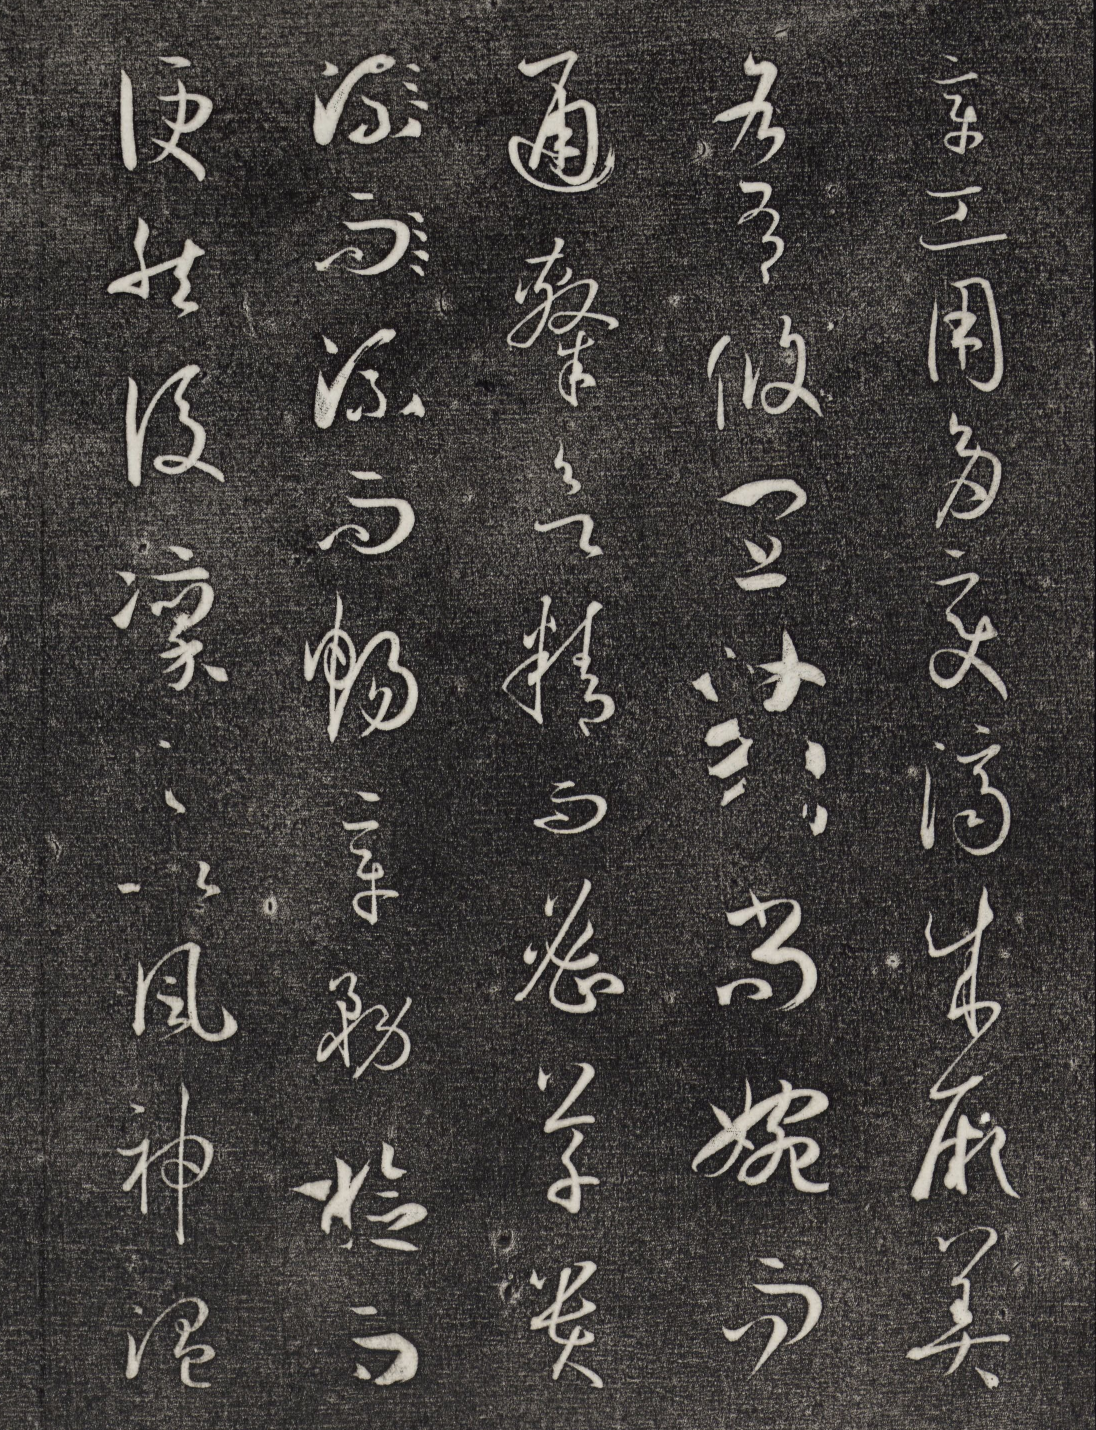 章工用多變濟成厥美
各有攸宜篆尚婉而
通隸欲精而密草貴
流而流而暢章務檢而
便然後凜之以風神溫